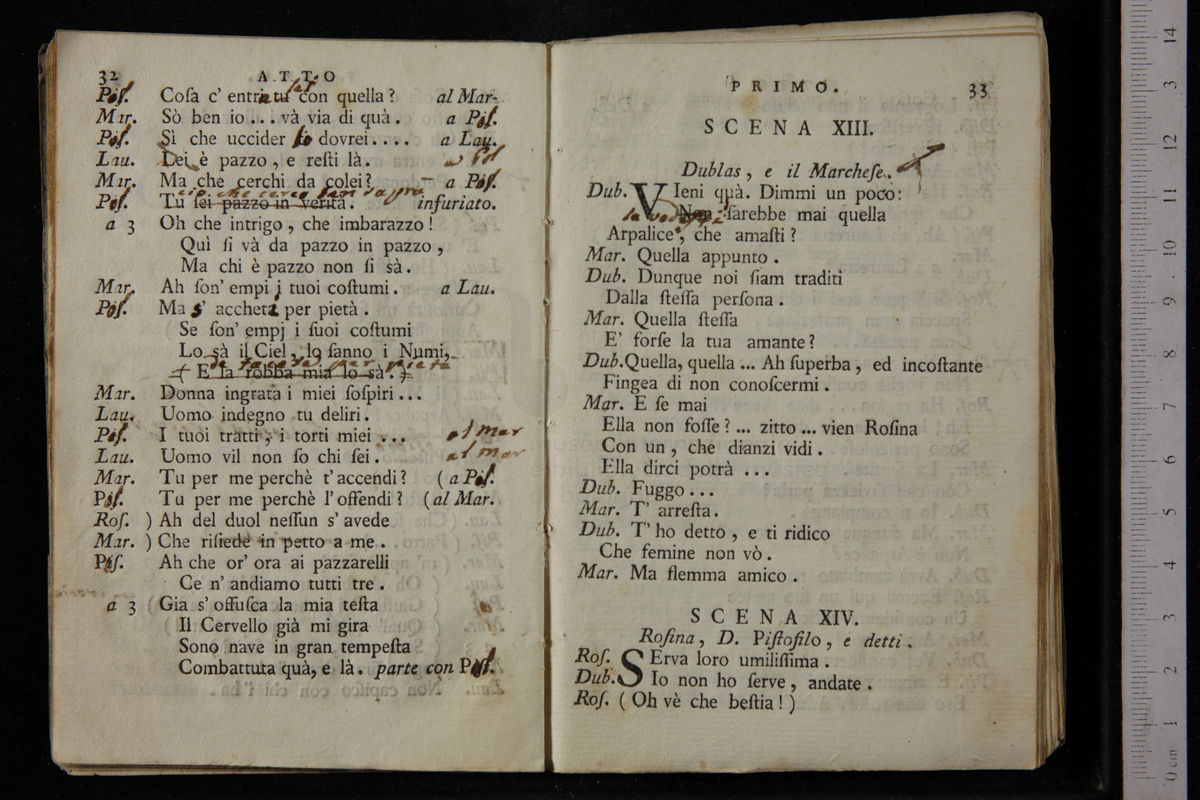 32 ATTO
Pis. Cosa c' entri tu con quella? al Mar-
Mar. Sò ben io... và via di quà. a Pis.
Pis. Sì che uccider dovrei.... a Lau.
Lau. Lei è pazzo, e resti là.
Mar. Ma che cerchi da colei? - a Pis.
Pis. Tu sei pazzo in verità. infuriato.
a 3 Oh che intrigo, che imbarazzo!
Quì si và da pazzo in pazzo,
Ma chi è pazzo non si sà.
Mar. Ah son' empj i tuoi costumi. a Lau.
Pis. Ma s' accheti per pietà.
Se son' empj i suoi costumi
Lo sà il Ciel, lo sanno i Numi,
se tace per pietà
( E la robba mia lo sà. )
Mar. Donna ingrata i miei sospiri...
Lau. Uomo indegno tu deliri.
Pis. I tuoi tratti, i torti miei ... al Mar
Lau. Uomo vil non so chi sei. al mar
Mar. Tu per me perchè t' accendi? (a Pis.
Pis. Tu per me perchè l' offendi? (al Mar.
Ros. ) Ah del duol nessun s' avede
Mar. ) Che risiede in petto a me.
Pis. Ah che or' ora ai pazzarelli
Ce n' andiamo tutti tre.
a 3 Gia s' offusca la mia testa
Il Cervello già mi gira
Sono nave in gran tempesta
Combattuta quà, e là. parte con Pis.
PRIMO. 33
SCENA XIII.
Dublas, e il Marchese.
Dub. VIeni quà. Dimmi un poco:
Non sarebbe mai quella
Arpalice, che amasti?
Mar. Quella appunto.
Dub. Dunque noi siam traditi
Dalla stessa persona.
Mar. Quella stessa
E' forse la tua amante?
Dub. Quella, quella ... Ah superba, ed incostante
Fingea di non conoscermi.
Mar. E se mai
Ella non fosse? ... zitto ... vien Rosina
Con un, che dianzi vidi.
Ella dirci potrà ...
Dub. Fuggo...
Mar. T' arresta.
Dub. T' ho detto, e ti ridico
Che femine non vò.
Mar. Ma flemma amico.
SCENA XIV.
Rosina, D. Pistofilo, e detti.
Ros. SErva loro umilissima.
Dub. Io non ho serve, andate.
Ros. (Oh vè che bestia!)
14
13
12
11
10
9
8
7
6
5
4
3
2
1
0 cm